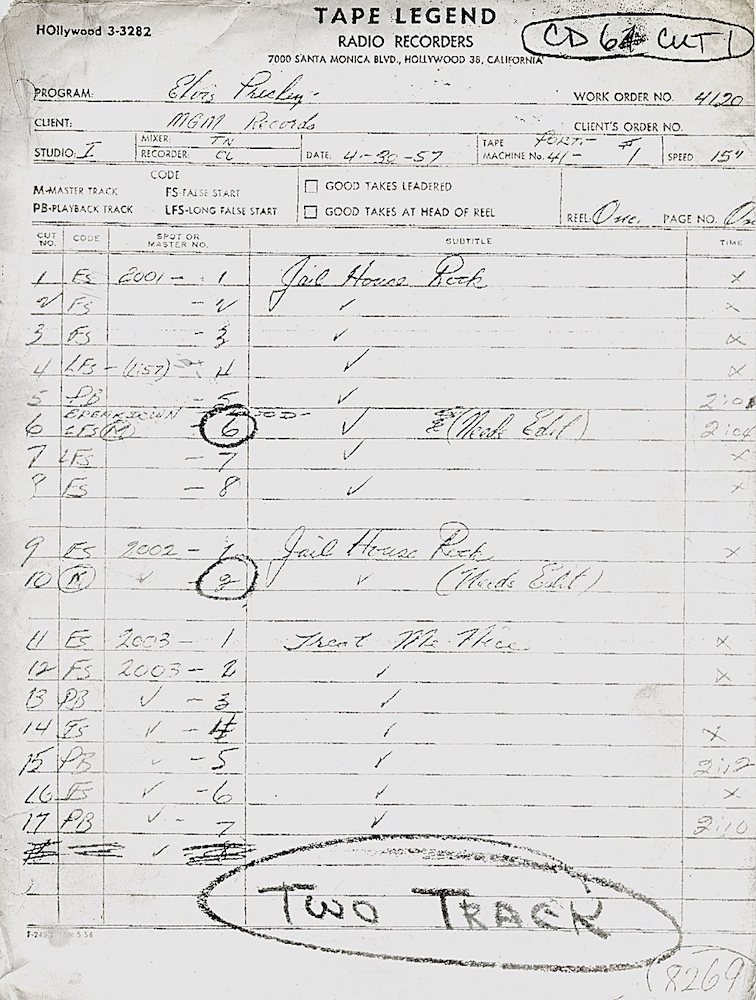 TAPE LEGEND
HOllywood 3-3282
RADIO RECORDERS
7000 SANTA MONICA BLVD., HOLLYWOOD 38, CALIFORNIA
CD 6 CUT 1
PROGRAM: Elvis Presley - WORK ORDER NO. 4120
CLIENT: MGM Records CLIENT'S ORDER NO.
STUDIO: I MIXER: TN TAPE PORT. #
RECORDER: CL DATE: 4-30-57 MACHINE No. 41- 1 SPEED 15"
CODE
M-MASTER TRACK FS-FALSE START GOOD TAKES LEADERED
PB-PLAYBACK TRACK LFS-LONG FALSE START GOOD TAKES AT HEAD OF REEL REEL One. PAGE NO.
CUT NO. CODE SPOT OR MASTER NO. SUBTITLE TIME
1 Fs 2001 - 1 Jail House Rock x
2 Fs - 2 ✓ x
3 Fs - 3 ✓ x
4 LFs - (1:57) - 4 ✓ x
5 PB - 5 ✓ 2:01
BREAKDOWN
6 LFS (M) - 6 ✓ (Needs Edit) 2:04
7 LFs - 7 x
8 Fs - 8 ✓ x
9 Fs 2002 - 1 Jail House Rock x
10 M ✓ - 2 ✓ (Needs Edit)
11 Fs 2003 - 1 Treat Me Nice x
12 Fs 2003 - 2 ✓ x
13 PB ✓ - 3 ✓
14 Fs ✓ - 4 ✓ x
15 PB ✓ - 5 ✓ 2:12
16 Fs ✓ - 6 ✓ x
17 PB ✓ - 7 ✓ 2:10
TWO TRACK
8269